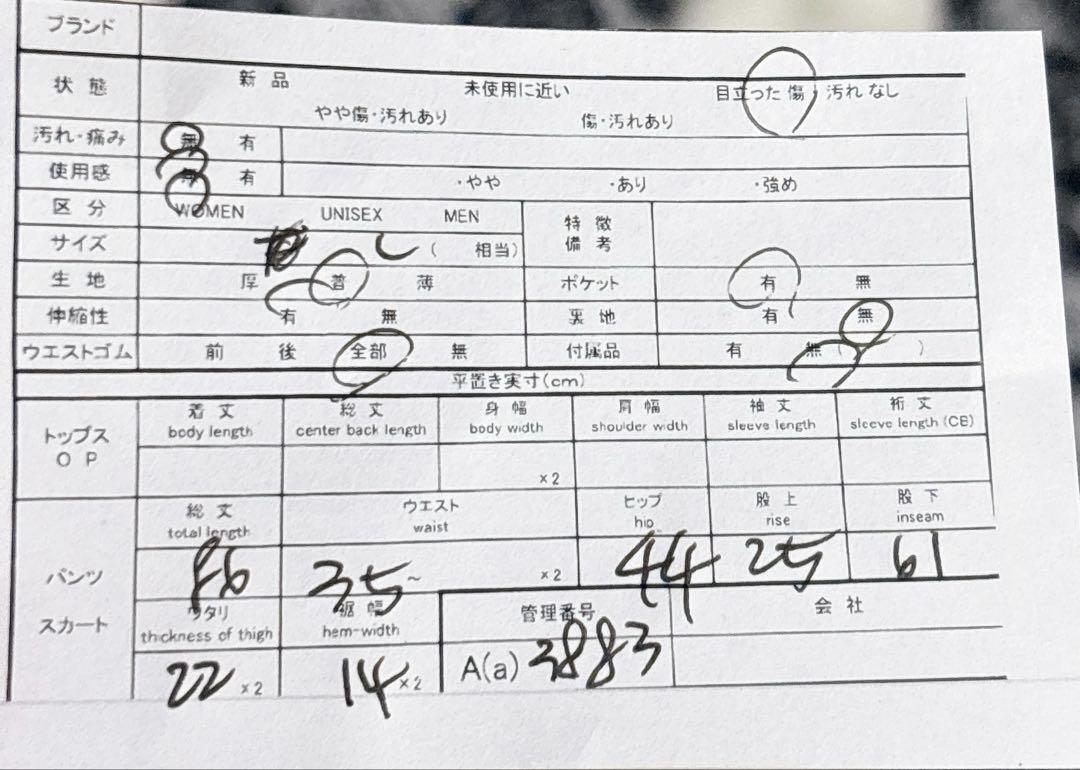 ブランド
状態 新品 未使用に近い 目立った傷・汚れなし
やや傷・汚れあり 傷・汚れあり
汚れ・痛み 無 有
使用感 無 有 ・やや ・あり ・強め
区分 WOMEN UNISEX MEN 特徴備考
サイズ L ( 相当)
生地 厚 普 薄 ポケット 有 無
伸縮性 有 無 裏地 有 無
ウエストゴム 前 後 全部 無 付属品 有 無 ( )
平置き実寸(cm)
トップス OP 着丈 総丈 身幅 肩幅 袖丈 裄丈
body length center back length body width shoulder width sleeve length sleeve length (CB)
×2
パンツ スカート 総丈 ウエスト ヒップ 股上 股下
total length waist hip rise inseam
86 35~ ×2 44 25 61
ワタリ 裾幅 管理番号 会社
thickness of thigh hem-width
22 ×2 14 ×2 A(a) 3883